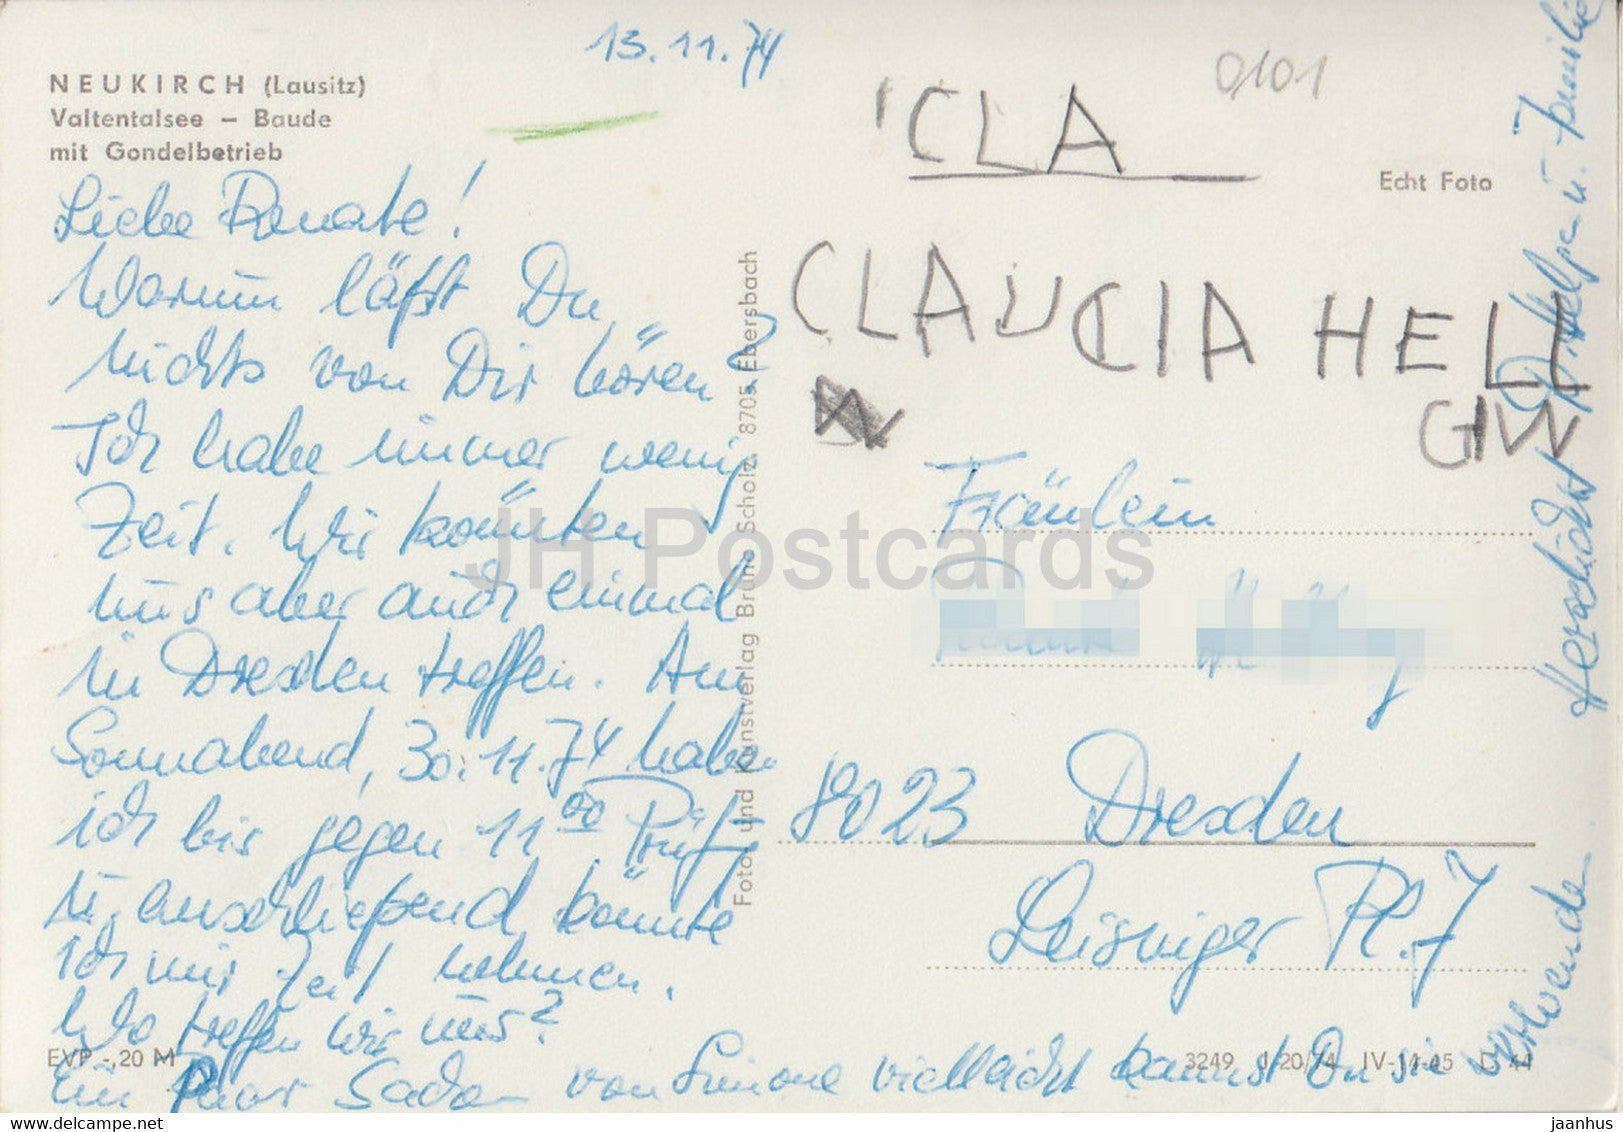 13.11.74
NEUKIRCH (Lausitz)
Valtentalsee – Baude
mit Gondelbetrieb
Liebe Renate!
Warum läßt Du
nichts von Dir hören?
Ich habe immer wenig
Zeit. Wir könnten
uns aber auch einmal
in Dresden treffen. Am
Sonnabend, 30.11.74 habe
ich bis gegen 11 00 Prüf.
u. anschließend könnte
ich mir Zeit nehmen.
Wo treffen wir uns?
Ein Paar Sachen von Simone vielleicht kannst Du sie verwenden
Herzlichst
u. Familie
EVP -,20 M
Foto und Kunstverlag Bruno Scholz, 8705 Ebersbach
0101
'CLA
Echt Foto
CLAUCIA HELL
GIW
Fräulein
8023 Dresden
Leisniger Pl. 7
3249 I 20/74 IV-14-45 D 44
JH Postcards
jaanhus
www.delcampe.net